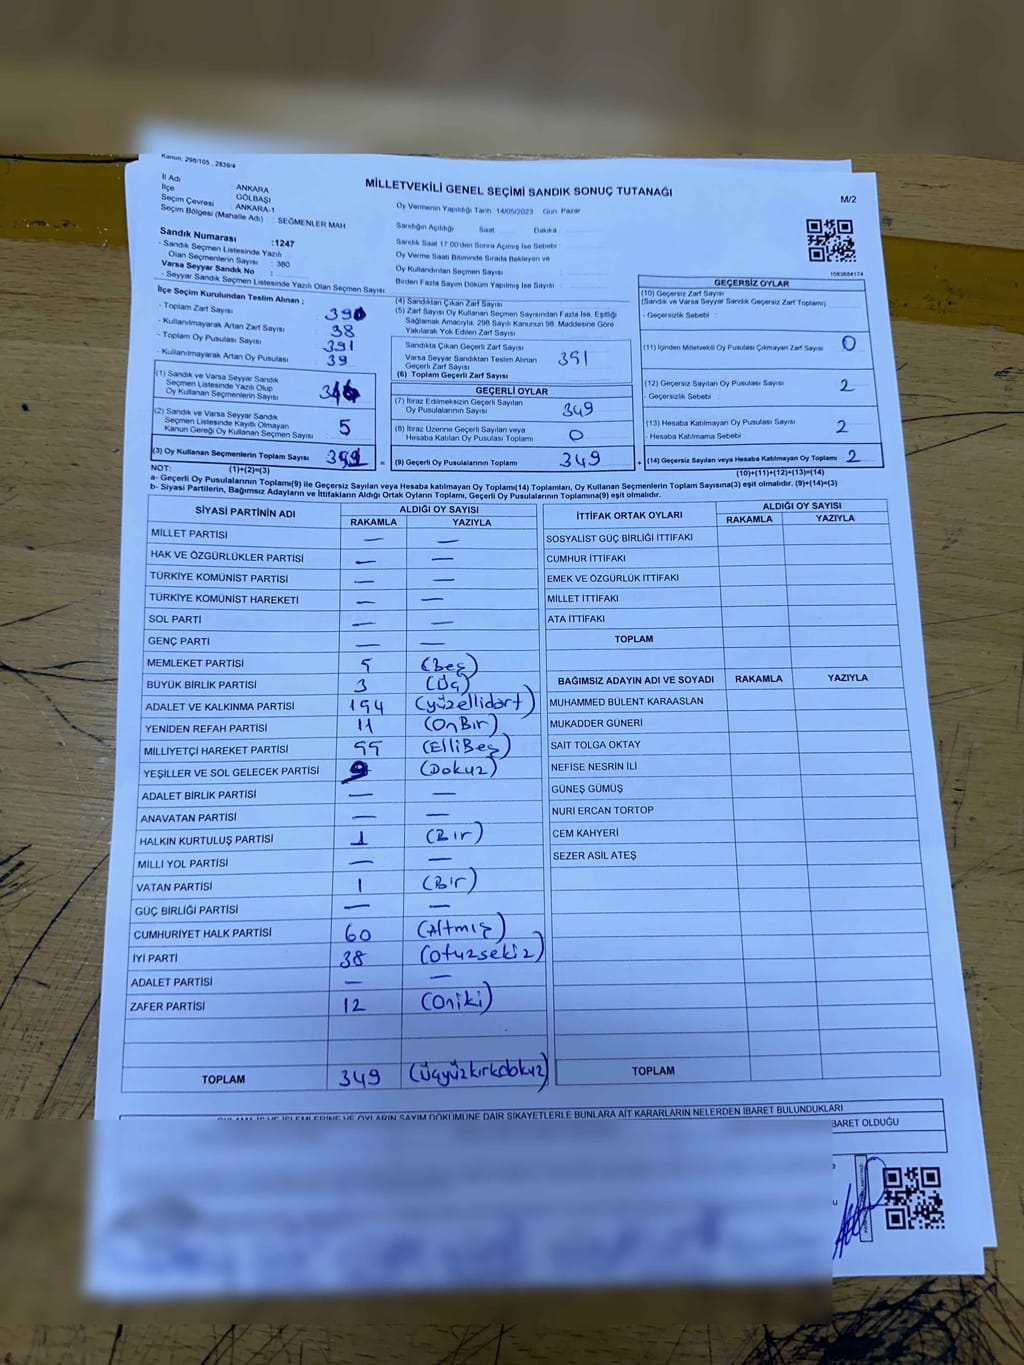 Kanun: 298/105 , 2839/4
MİLLETVEKİLİ GENEL SEÇİMİ SANDIK SONUÇ TUTANAĞI
M/2
İl Adı : ANKARA
İlçe : GÖLBAŞI
Seçim Çevresi : ANKARA-1
Seçim Bölgesi (Mahalle Adı) : SEĞMENLER MAH
Sandık Numarası : 1247
- Sandık Seçmen Listesinde Yazılı
Olan Seçmenlerin Sayısı : 380
Varsa Seyyar Sandık No :
- Seyyar Sandık Seçmen Listesinde Yazılı Olan Seçmen Sayısı:
Oy Vermenin Yapıldığı Tarih :14/05/2023 Gün: Pazar
Sandığın Açıldığı Saat: Dakika:
Sandık Saat 17:00'den Sonra Açılmış İse Sebebi :
Oy Verme Saati Bitiminde Sırada Bekleyen ve
Oy Kullandırılan Seçmen Sayısı :
Birden Fazla Sayım Döküm Yapılmış İse Sayısı :
1063684174
İlçe Seçim Kurulundan Teslim Alınan ;
- Toplam Zarf Sayısı : 390
- Kullanılmayarak Artan Zarf Sayısı : 38
- Toplam Oy Pusulası Sayısı : 391
- Kullanılmayarak Artan Oy Pusulası : 39
(1) Sandık ve Varsa Seyyar Sandık
Seçmen Listesinde Yazılı Olup
Oy Kullanan Seçmenlerin Sayısı :
(2) Sandık ve Varsa Seyyar Sandık
Seçmen Listesinde Kayıtlı Olmayan
Kanun Gereği Oy Kullanan Seçmen Sayısı : 5
(3) Oy Kullanan Seçmenlerin Toplam Sayısı :
(1)+(2)=(3)
(4) Sandıktan Çıkan Zarf Sayısı :
(5) Zarf Sayısı Oy Kullanan Seçmen Sayısından Fazla İse, Eşitliği
Sağlamak Amacıyla, 298 Sayılı Kanunun 98. Maddesine Göre
Yakılarak Yok Edilen Zarf Sayısı :
Sandıkta Çıkan Geçerli Zarf Sayısı :
Varsa Seyyar Sandıktan Teslim Alınan
Geçerli Zarf Sayısı :
(6) Toplam Geçerli Zarf Sayısı : 351
GEÇERLİ OYLAR
(7) İtiraz Edilmeksizin Geçerli Sayılan
Oy Pusulalarının Sayısı : 349
(8) İtiraz Üzerine Geçerli Sayılan veya
Hesaba Katılan Oy Pusulası Toplamı : 0
= (9) Geçerli Oy Pusulalarının Toplamı : 349
GEÇERSİZ OYLAR
(10) Geçersiz Zarf Sayısı :
(Sandık ve Varsa Seyyar Sandık Geçersiz Zarf Toplamı)
- Geçersizlik Sebebi :
(11) İçinden Milletvekili Oy Pusulası Çıkmayan Zarf Sayısı : 0
(12) Geçersiz Sayılan Oy Pusulası Sayısı : 2
- Geçersizlik Sebebi :
(13) Hesaba Katılmayan Oy Pusulası Sayısı : 2
- Hesaba Katılmama Sebebi :
+ (14) Geçersiz Sayılan veya Hesaba Katılmayan Oy Toplamı : 2
(10)+(11)+(12)+(13)=(14)
NOT:
a- Geçerli Oy Pusulalarının Toplamı(9) ile Geçersiz Sayılan veya Hesaba Katılmayan Oy Toplamı(14) Toplamları, Oy Kullanan Seçmenlerin Toplam Sayısına(3) eşit olmalıdır. (9)+(14)=(3)
b- Siyasi Partilerin, Bağımsız Adayların ve İttifakların Aldığı Ortak Oyların Toplamı, Geçerli Oy Pusulalarının Toplamına(9) eşit olmalıdır.
SİYASİ PARTİNİN ADI ALDIĞI OY SAYISI
RAKAMLA YAZIYLA
MİLLET PARTİSİ — —
HAK VE ÖZGÜRLÜKLER PARTİSİ — —
TÜRKİYE KOMÜNİST PARTİSİ — —
TÜRKİYE KOMÜNİST HAREKETİ — —
SOL PARTİ — —
GENÇ PARTİ — —
MEMLEKET PARTİSİ 5 (Beş)
BÜYÜK BİRLİK PARTİSİ 3 (Üç)
ADALET VE KALKINMA PARTİSİ 154 (yüzellidört)
YENİDEN REFAH PARTİSİ 11 (OnBir)
MİLLİYETÇİ HAREKET PARTİSİ 55 (ElliBeş)
YEŞİLLER VE SOL GELECEK PARTİSİ 9 (Dokuz)
ADALET BİRLİK PARTİSİ — —
ANAVATAN PARTİSİ — —
HALKIN KURTULUŞ PARTİSİ 1 (Bir)
MİLLİ YOL PARTİSİ — —
VATAN PARTİSİ 1 (Bir)
GÜÇ BİRLİĞİ PARTİSİ — —
CUMHURİYET HALK PARTİSİ 60 (Altmış)
İYİ PARTİ 38 (Otuzsekiz)
ADALET PARTİSİ — —
ZAFER PARTİSİ 12 (Oniki)
TOPLAM 349 (Üçyüzkırkdokuz)
İTTİFAK ORTAK OYLARI ALDIĞI OY SAYISI
RAKAMLA YAZIYLA
SOSYALİST GÜÇ BİRLİĞİ İTTİFAKI
CUMHUR İTTİFAKI
EMEK VE ÖZGÜRLÜK İTTİFAKI
MİLLET İTTİFAKI
ATA İTTİFAKI
TOPLAM
BAĞIMSIZ ADAYIN ADI VE SOYADI RAKAMLA YAZIYLA
MUHAMMED BÜLENT KARAASLAN
MUKADDER GÜNERİ
SAİT TOLGA OKTAY
NEFİSE NESRİN İLİ
GÜNEŞ GÜMÜŞ
NURİ ERCAN TORTOP
CEM KAHYERİ
SEZER ASİL ATEŞ
TOPLAM
İŞLEMLERİNE VE OYLARIN SAYIM DÖKÜMÜNE DAİR ŞİKAYETLERLE BUNLARA AİT KARARLARIN NELERDEN İBARET BULUNDUKLARI
BARET OLDUĞU